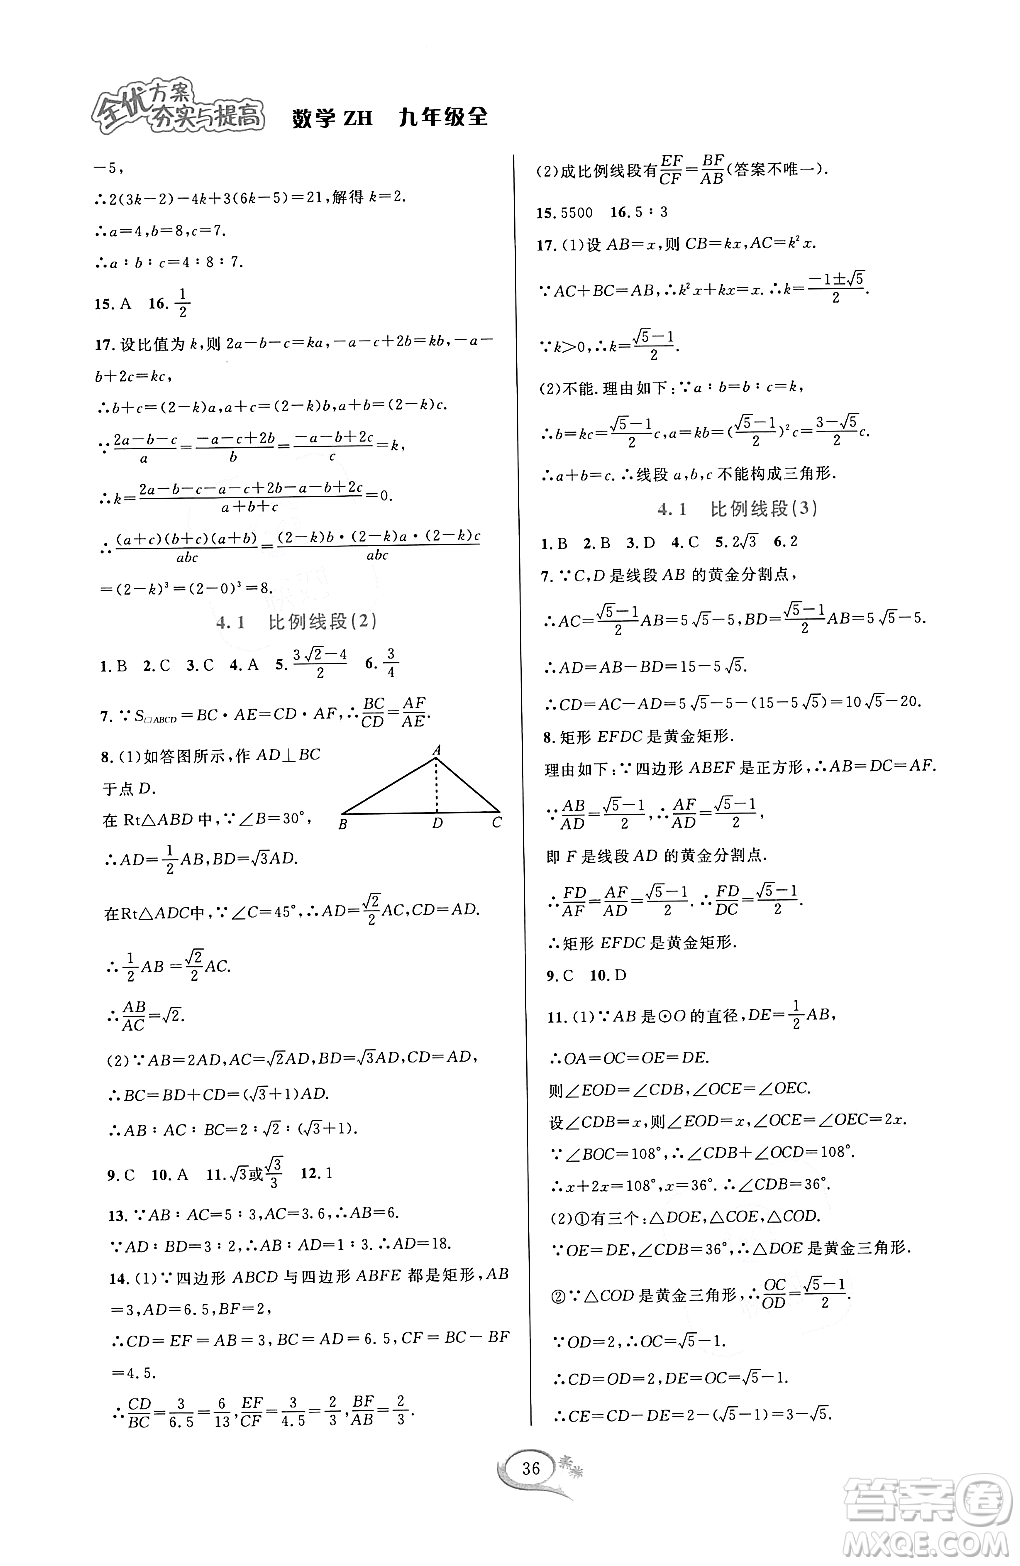 全优方案
夯实与提高
数学 ZH 九年级全
－5，
∴2(3k－2)－4k＋3(6k－5)＝21,解得 k＝2.
∴a＝4,b＝8,c＝7.
∴a∶b∶c＝4∶8∶7.
15. A 16. 1/2
17. 设比值为 k,则 2a－b－c＝ka,－a－c＋2b＝kb,－a－
b＋2c＝kc,
∴b＋c＝(2－k)a,a＋c＝(2－k)b,a＋b＝(2－k)c.
∵(2a－b－c)/a＝(－a－c＋2b)/b＝(－a－b＋2c)/c＝k,
∴k＝(2a－b－c－a－c＋2b－a－b＋2c)/(a＋b＋c)＝0.
∴(a＋c)(b＋c)(a＋b)/abc＝(2－k)b·(2－k)a·(2－k)c/abc
＝(2－k)³＝(2－0)³＝8.
4.1 比例线段(2)
1. B 2. C 3. C 4. A 5. (3√2－4)/2 6. 3/4
7. ∵S□ABCD＝BC·AE＝CD·AF,∴BC/CD＝AF/AE.
8. (1)如答图所示,作 AD⊥BC
于点 D.
在 Rt△ABD 中,∵∠B＝30°,
A
B D C
∴AD＝1/2AB,BD＝√3AD.
在Rt△ADC中,∵∠C＝45°,∴AD＝√2/2AC,CD＝AD.
∴1/2AB＝√2/2AC.
∴AB/AC＝√2.
(2)∵AB＝2AD,AC＝√2AD,BD＝√3AD,CD＝AD,
∴BC＝BD＋CD＝(√3＋1)AD.
∴AB∶AC∶BC＝2∶√2∶(√3＋1).
9. C 10. A 11. √3或√3/3 12. 1
13. ∵AB∶AC＝5∶3,AC＝3.6,∴AB＝6.
∵AD∶DC＝3∶2,∴AC∶AD＝1∶3.∴AD＝18.
14. (1)∵四边形 ABCD 与四边形 ABFE 都是矩形,AB
＝3,AD＝6.5,BF＝2,
∴CD＝EF＝AB＝3,BC＝AD＝6.5,CF＝BC－BF
＝4.5.
∴CD/BC＝3/6.5＝6/13,EF/CF＝3/4.5＝2/3,BF/AB＝2/3.
(2)成比例线段有EF/CF＝BF/AB(答案不唯一).
15. 5500 16. 5∶3
17. (1)设 AB＝x,则 CB＝kx,AC＝k²x.
∵AC＋BC＝AB,∴k²x＋kx＝x.∴k＝(－1±√5)/2.
∵k>0,∴k＝(√5－1)/2.
(2)不能.理由如下:∵a∶b＝b∶c＝k,
∴b＝kc＝(√5－1)/2c,a＝kb＝((√5－1)/2)²c＝(3－√5)/2c.
∴a＋b＝c.∴线段 a,b,c 不能构成三角形.
4.1 比例线段(3)
1. B 2. B 3. D 4. C 5. 2√3 6. 2
7. ∵C,D 是线段 AB 的黄金分割点,
∴AC＝(√5－1)/2AB＝5√5－5,BD＝(√5－1)/2AB＝5√5－5.
∴AD＝AB－BD＝15－5√5.
∴CD＝AC－AD＝5√5－5－(15－5√5)＝10√5－20.
8. 矩形 EFDC 是黄金矩形.
理由如下:∵四边形 ABEF 是正方形,∴AB＝DC＝AF.
∵AB/AD＝(√5－1)/2,∴AF/AD＝(√5－1)/2.
即 F 是线段 AD 的黄金分割点.
∴FD/AF＝AF/AD＝(√5－1)/2.∴FD/DC＝(√5－1)/2.
∴矩形 EFDC 是黄金矩形.
9. C 10. D
11. (1)∵AB 是⊙O 的直径,DE＝1/2AB,
∴OA＝OC＝OE＝DE.
则∠EOD＝∠CDB,∠OCE＝∠OEC.
设∠CDB＝x,则∠EOD＝x,∠OCE＝∠OEC＝2x.
∵∠BOC＝108°,∴∠CDB＋∠OCD＝108°.
∴x＋2x＝108°,x＝36°.∴∠CDB＝36°.
(2)①有三个:△DOE,△COE,△COD.
∵OE＝DE,∠CDB＝36°,∴△DOE 是黄金三角形.
②∵△COD 是黄金三角形,∴OC/OD＝(√5－1)/2.
∵OD＝2,∴OC＝√5－1.
∵CD＝OD＝2,DE＝OC＝√5－1,
∴CE＝CD－DE＝2－(√5－1)＝3－√5.
36
答案圈
MXQE.COM